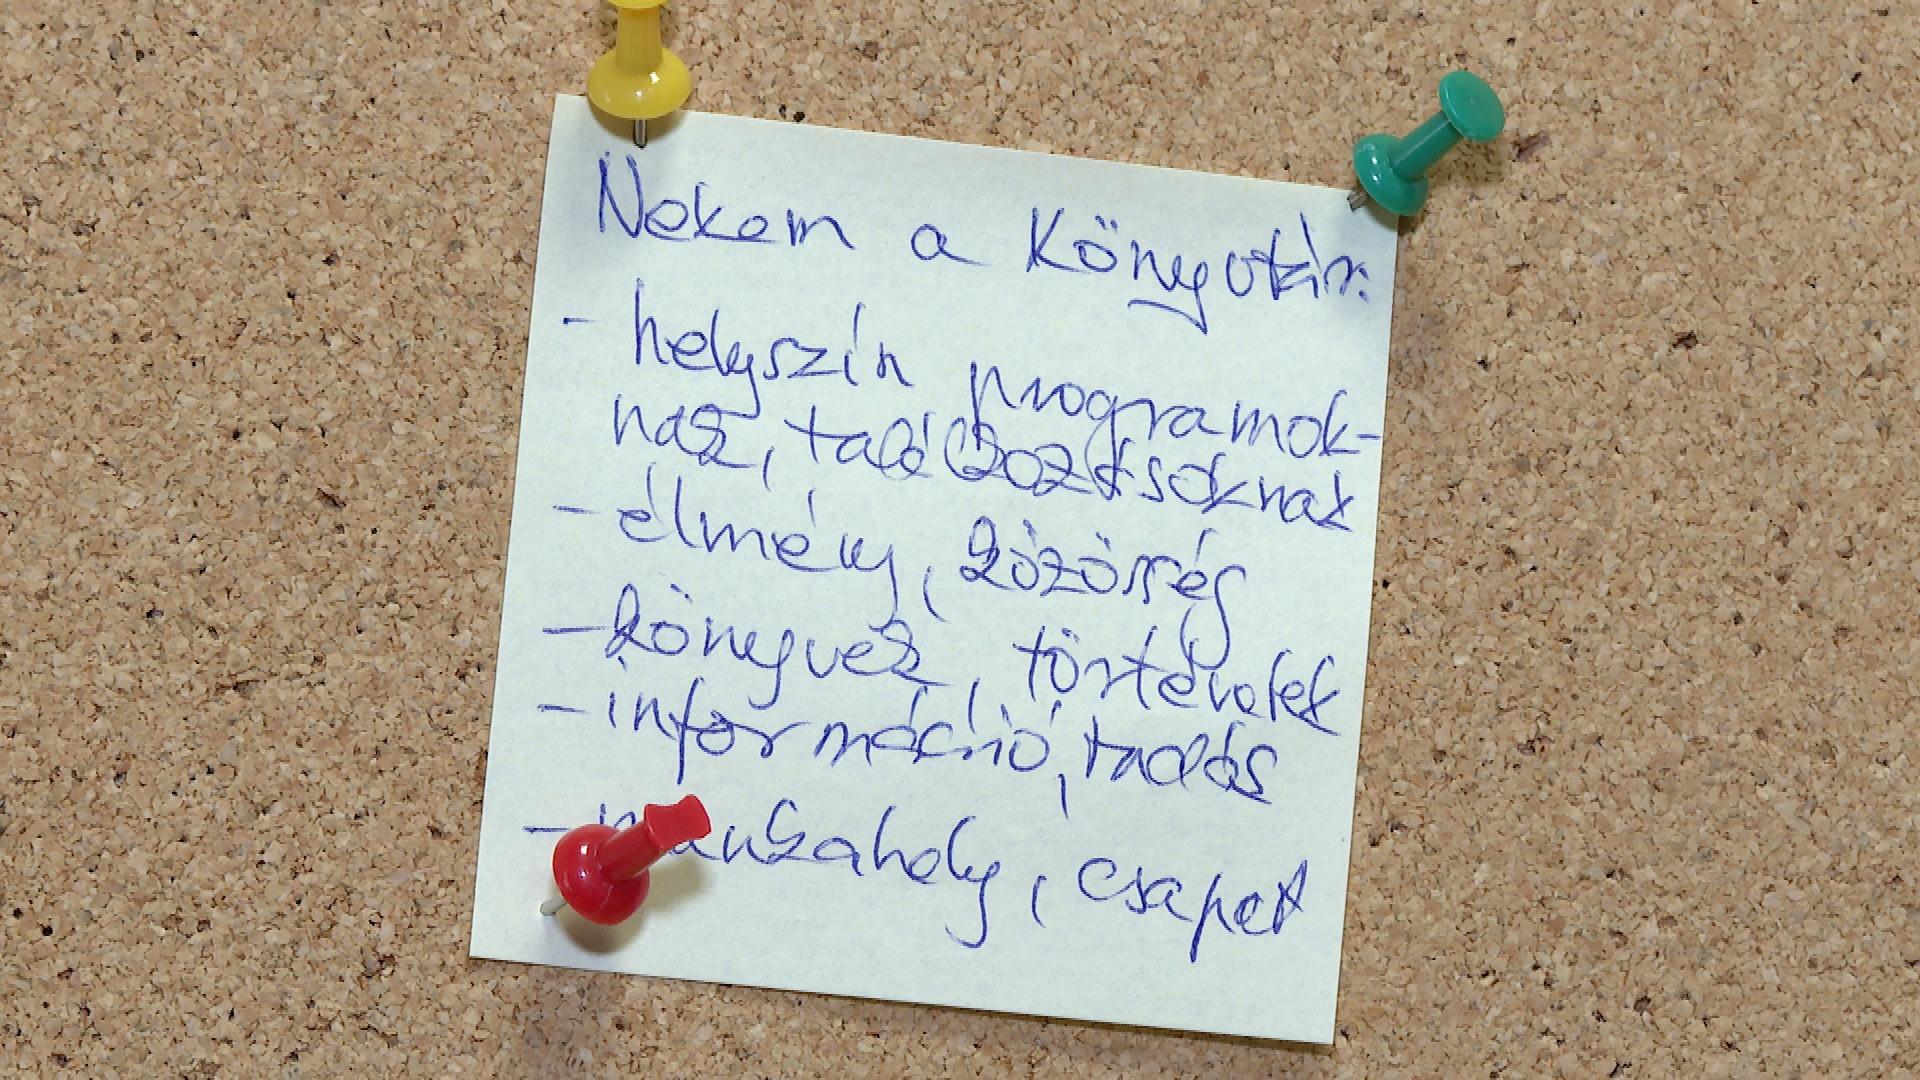 Nekem a Könyvtár:
- helyszín programok-
nak, találkozásoknak
- élmény, közösség
- könyvek, történetek
- információ, tudás
- munkahely, csapat